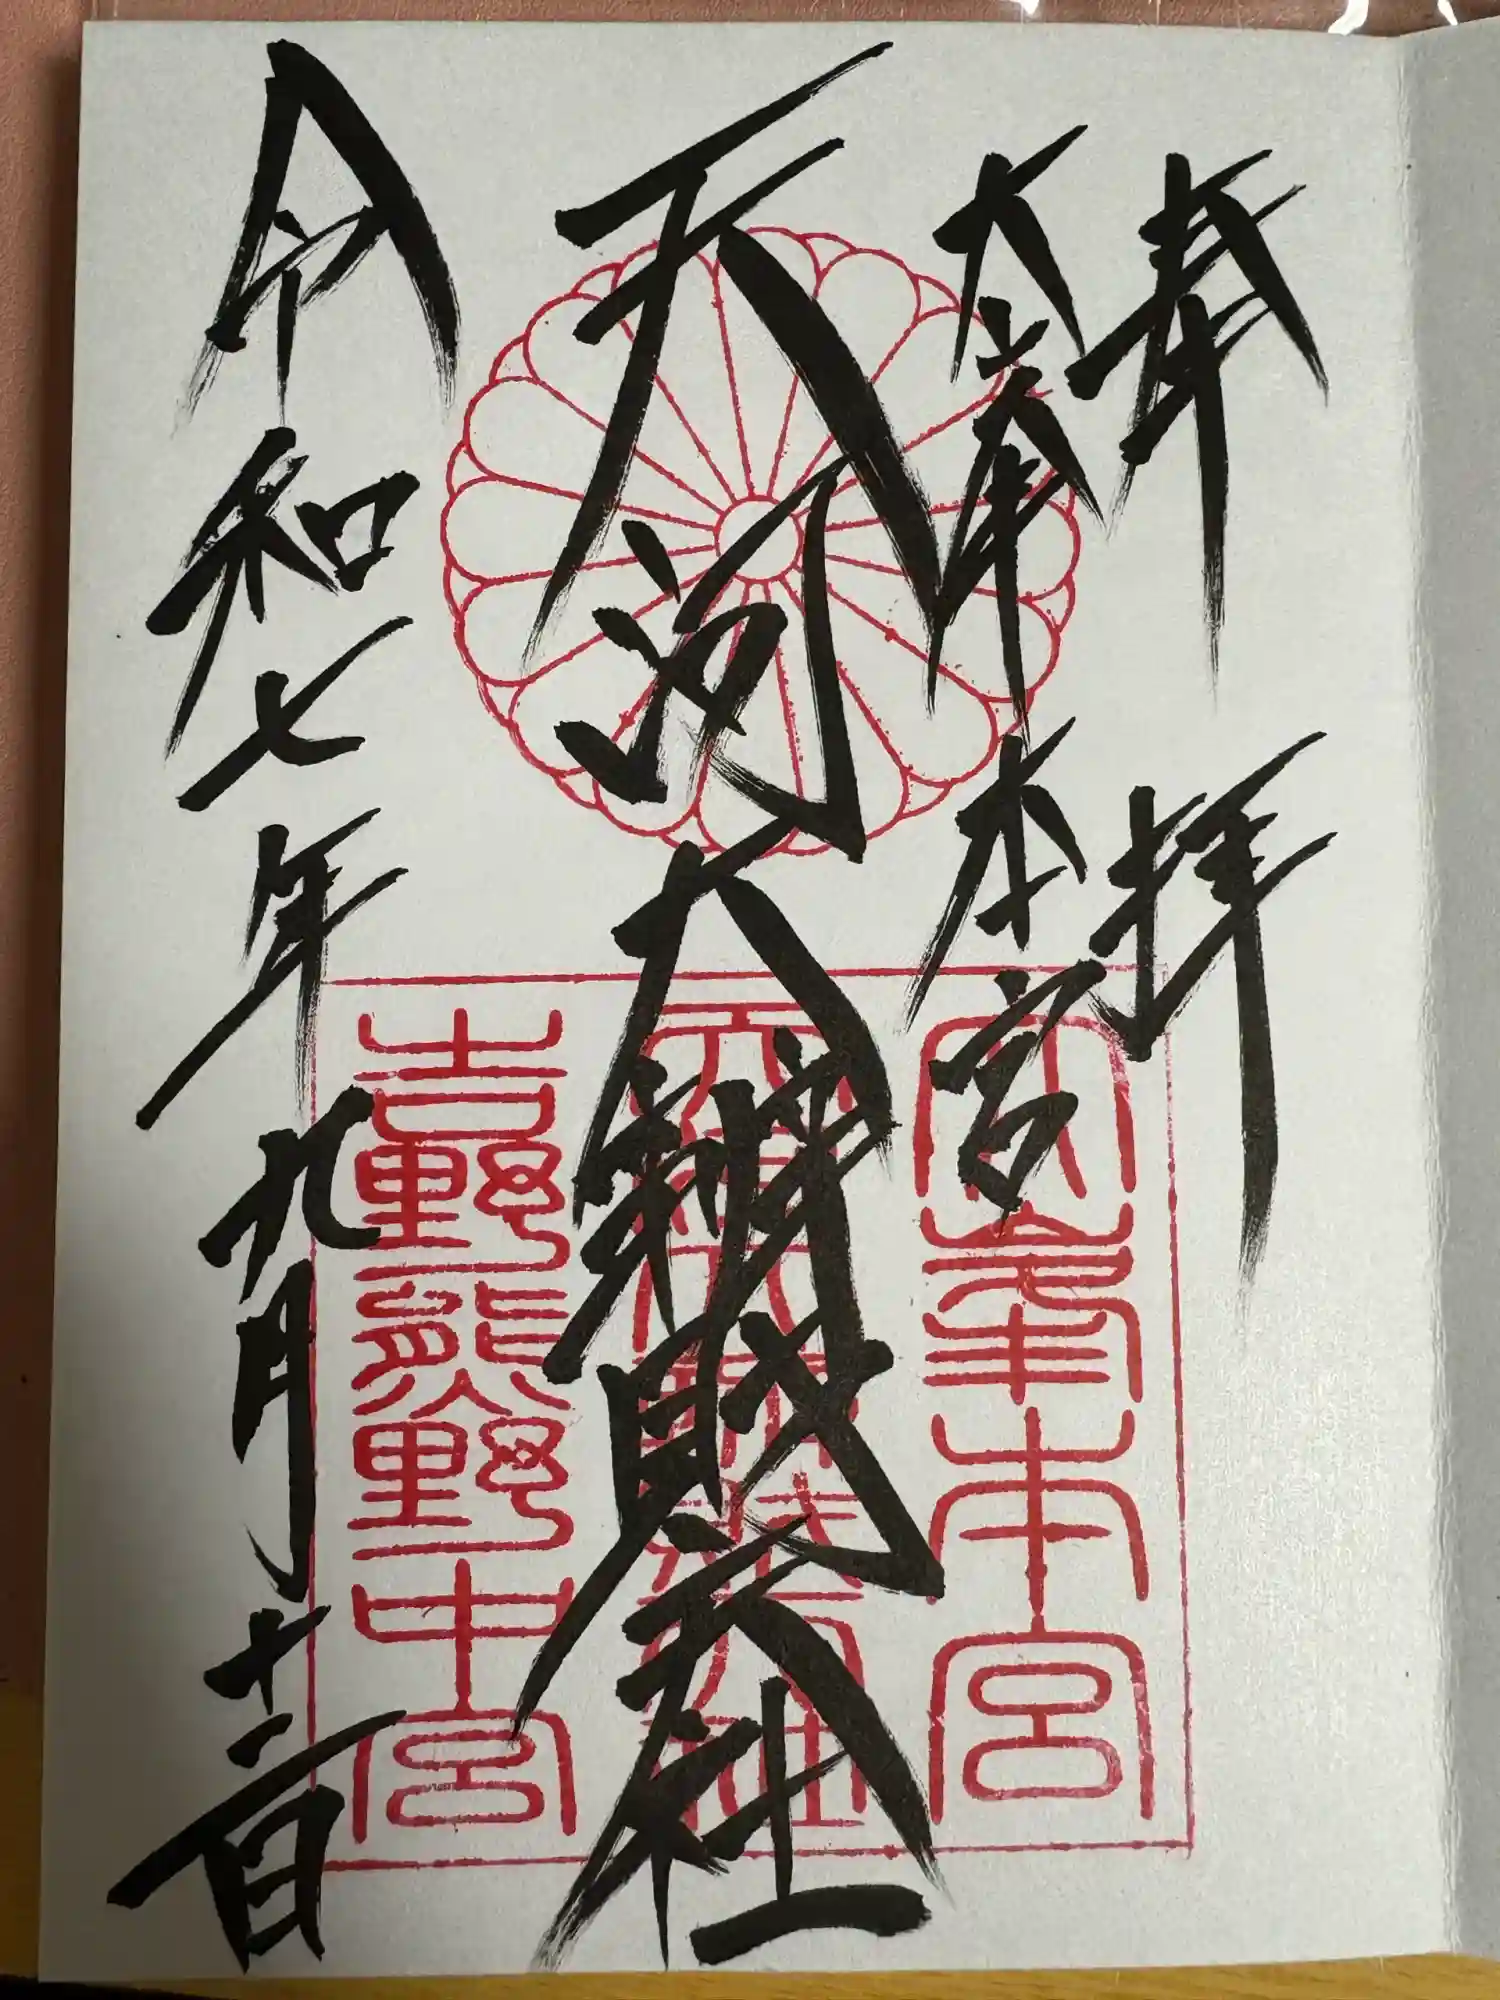 奉拝
大峯本宮
天河大辨財天社
令和七年九月十二日
大峯本宮
天河大辨財天社
吉野熊野中宮